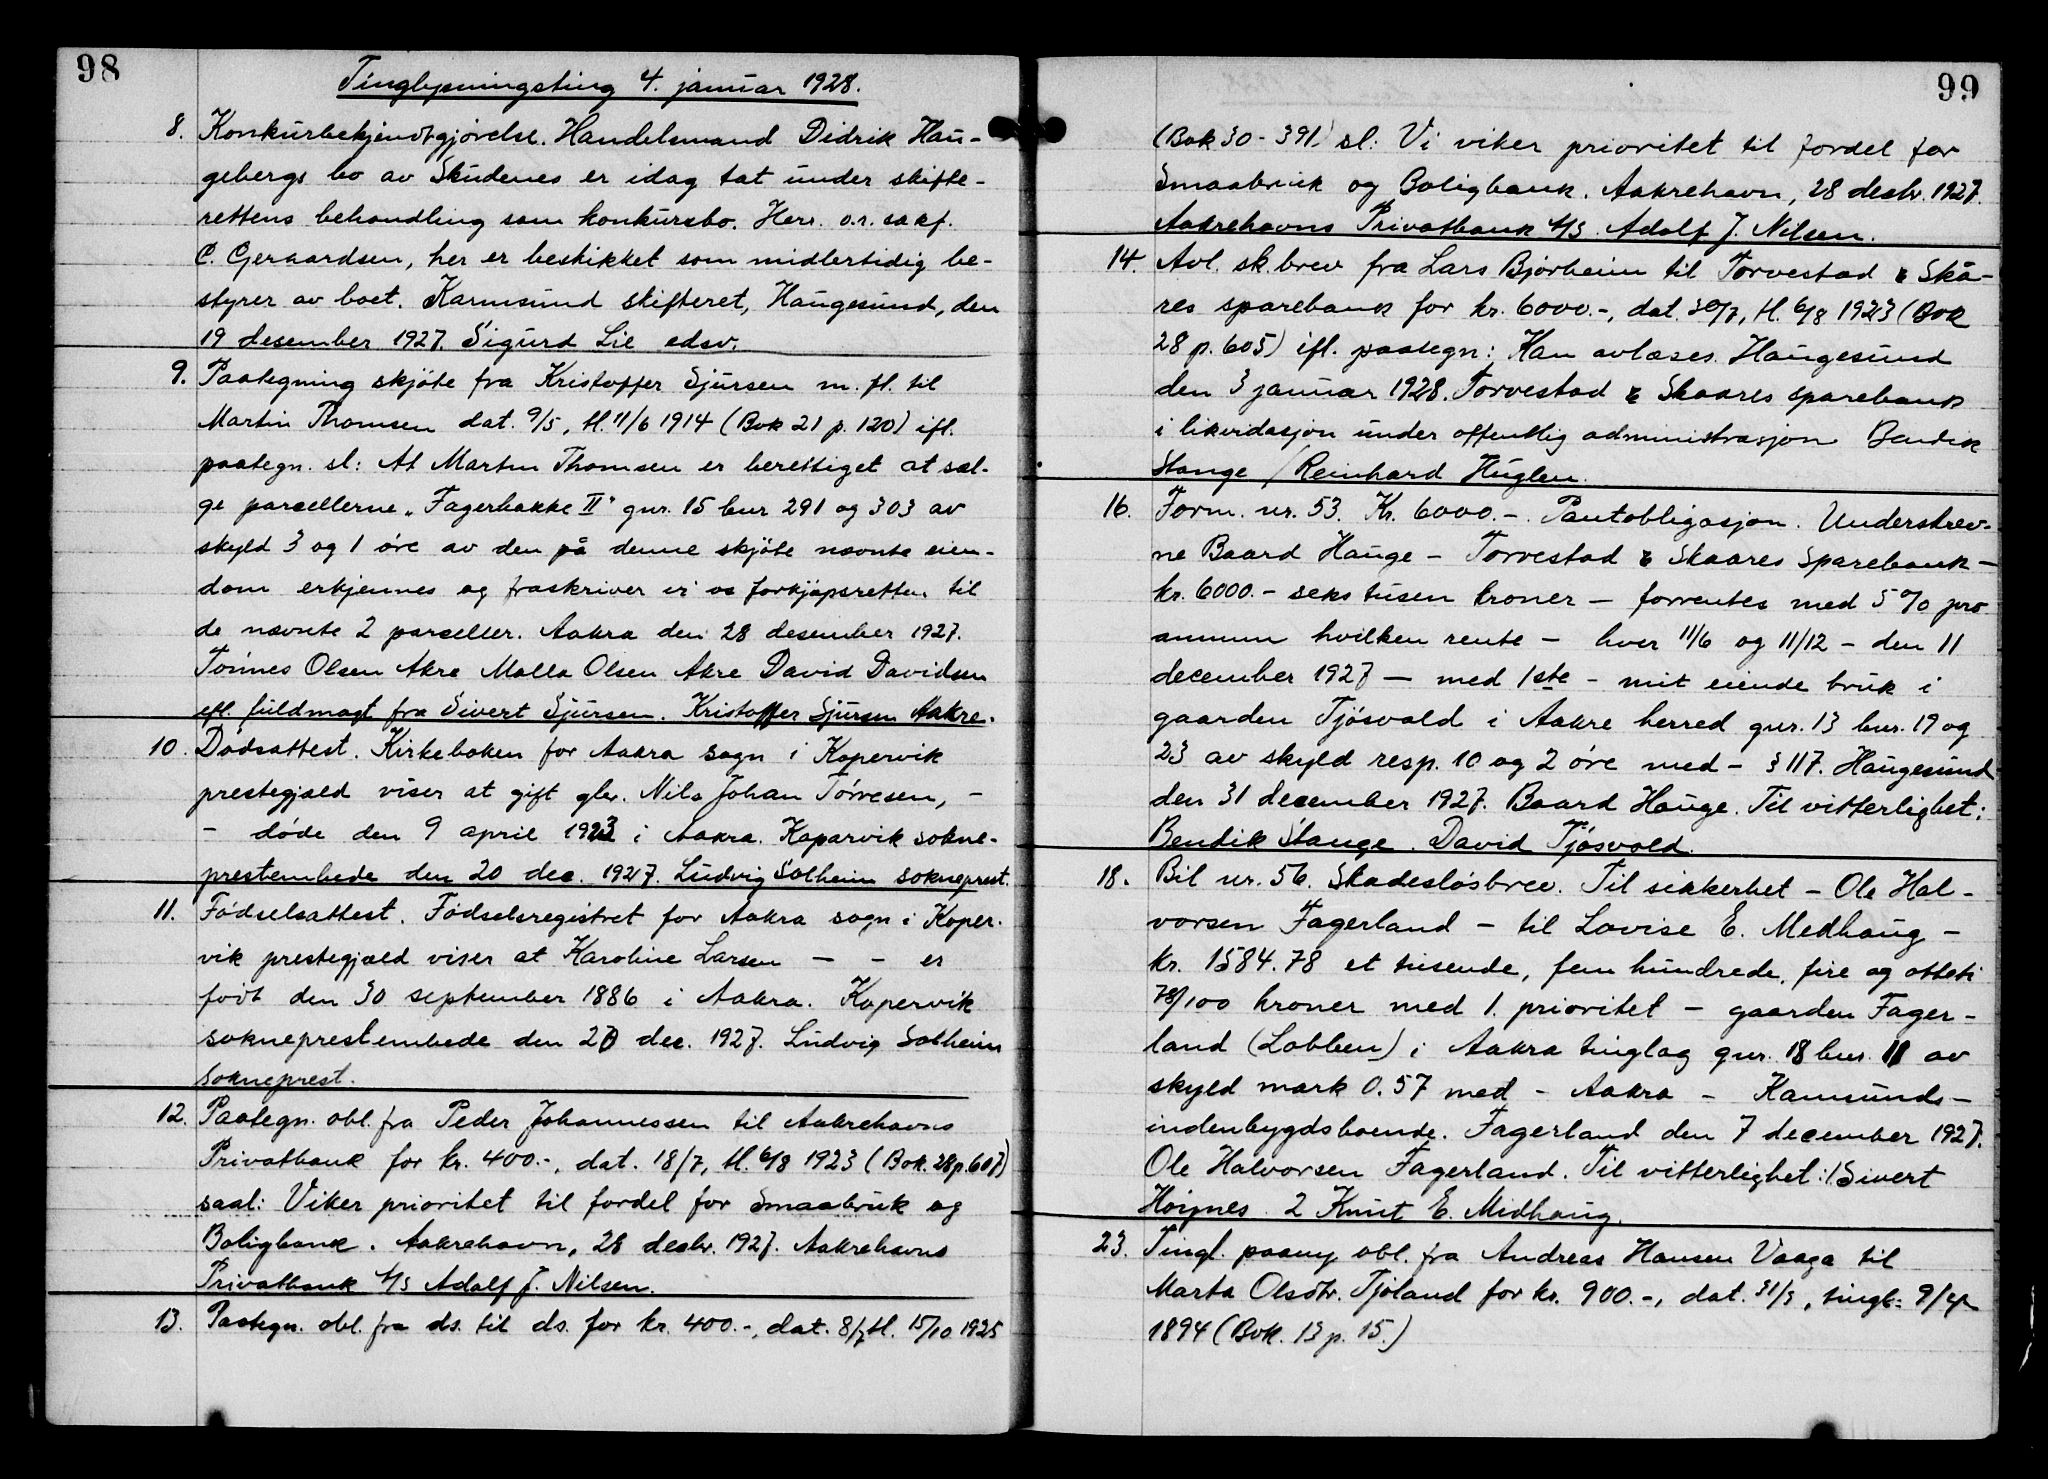 98
Tinglysningsting 4. januar 1928.
8. Konkursbekjendtgjørelse. Handelsmand Didrik Hau-
gebergs bo av Skudenes er idag tat under skifte-
rettens behandling som konkursbo. Herr. o.r. sakf.
C. Geraardsen, her er beskikket som midlertidig be-
styrer av boet. Karmsund skifteret, Haugesund, den
19 desember 1927. Sigurd Lie edsv.
9. Paategning skjøte fra Kristoffer Sjursen m. fl. til
Martin Thomsen dat. 9/5, tl. 11/6 1914 (Bok 21 p. 120) ifl.
paategn. sl: At Martin Thomsen er berettiget at sæl-
ge parcellerne „Fagerbakke II" gnr. 15 bnr 291 og 303 av
skyld 3 og 1 øre av den på denne skjøte nævnte eien-
dom erkjennes og fraskriver vi os forkjøpsretten til
de nævnte 2 parceller. Aakra den 28 desember 1927.
Tønnes Olsen Akre Malla Olsen Akre David Davidsen
efl. fuldmagt fra Sivert Sjursen. Kristoffer Sjursen Aakre.
10. Dødsattest. Kirkeboken for Aakra sogn i Kopervik
prestegjæld viser at gift gbr. Nils Johan Tørresen, -
- døde den 9 april 1923 i Aakra. Koparvik sokne-
prestembede den 20 dec. 1927. Ludvig Solheim sokneprest.
11. Fødselsattest. Fødselsregistret for Aakra sogn i Koper-
vik prestegjæld viser at Karoline Larsen - - er
født den 30 september 1886 i Aakra. Kopervik
sokneprestembede den 20 dec. 1927. Ludvig Solheim
sokneprest.
12. Paategn. obl. fra Peder Johannessen til Aakrehavns
Privatbank for kr. 400.-, dat. 18/7, tl. 6/8 1923 (Bok. 28 p. 607)
saal: Viker prioritet til fordel for Smaabruk og
Boligbank. Aakrehavn, 28 desbr. 1927. Aakrehavns
Privatbank A/S Adolf J. Nilsen.
13. Paategn. obl. fra ds. til ds. for kr. 400.-, dat. 8/7 tl. 15/10 1925
99
(Bok 30 - 391) sl: Vi viker prioritet til fordel for
Smaabruk og Boligbank. Aakrehavn, 28 desbr. 1927.
Aakrehavns Privatbank A/S. Adolf J. Nilsen.
14. Avl. sk.brev fra Lars Bjørheim til Torvestad & Skå-
res sparebank for kr. 6000.-, dat. 30/7, tl. 6/8 1923 (Bok
28 p. 605) ifl. paategn: Kan avlæses. Haugesund
den 3 januar 1928. Torvestad & Skaares sparebank
i likvidasjon under offentlig administrasjon Bendik
Stange / Reinhard Huglen.
16. Form. nr. 53. Kr. 6000.-. Pantobligasjon. Underskrev-
ne Baard Hauge - Torvestad & Skaares Sparebank -
kr. 6000.- seks tusen kroner - forrentes med 5 % pro
annum hvilken rente - hver 11/6 og 11/12 - den 11
december 1927 - med 1ste - mit eiende bruk i
gaarden Tjøsvold i Aakre herred gnr. 13 bnr. 19 og
23 av skyld resp. 10 og 2 øre med - § 117. Haugesund
den 31 december 1927. Baard Hauge. Til vitterlighet:
Bendik Stange. David Tjøsvold.
18. Bil nr. 56. Skadesløsbrev. Til sikkerhet - Ole Hal-
vorsen Fagerland - til Lovise E. Medhaug -
kr. 1584.78 et tusende, fem hundrede, fire og otteti
78/100 kroner med 1. prioritet - gaarden Fager-
land (Lobben) i Aakra tinglag gnr. 18 bnr. 11 av
skyld mark 0.57 med - Aakra - Kamsunds-
indenbygdsboende. Fagerland den 7 december 1927.
Ole Halvorsen Fagerland. Til vitterlighet: 1 Sivert
Høines. 2 Knut E. Midhaug.
23. Tingl. paany obl. fra Andreas Hansen Vaaga til
Marta Olsdtr. Tjøland for kr. 900.-, dat. 31/3, tingl: 9/4
1894 (Bok. 13 p. 15.)